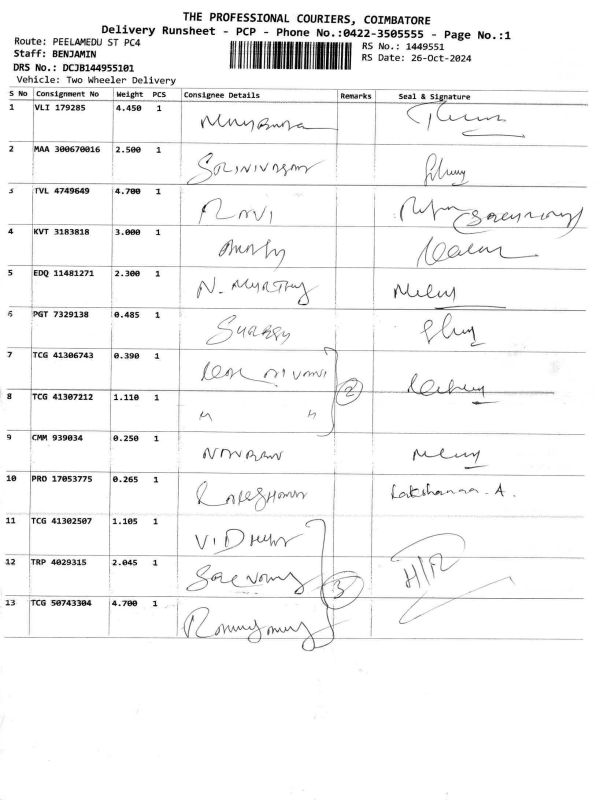 THE PROFESSIONAL COURIERS, COIMBATORE
Delivery Runsheet - PCP - Phone No.:0422-3505555 - Page No.:1
Route: PEELAMEDU ST PC4
RS No.: 1449551
Staff: BENJAMIN
RS Date: 26-Oct-2024
DRS No.: DCJB144955101
Vehicle: Two Wheeler Delivery
S No Consignment No Weight PCS Consignee Details Remarks Seal & Signature
1 VLI 179285 4.450 1
2 MAA 300670016 2.500 1
3 TVL 4749649 4.700 1 RAVI
4 KVT 3183818 3.000 1
5 EDQ 11481271 2.300 1 N. MURTHY
6 PGT 7329138 0.485 1
7 TCG 41306743 0.390 1
2
8 TCG 41307212 1.110 1 " "
9 CMM 939034 0.250 1
10 PRO 17053775 0.265 1 Lakshanaa . A.
11 TCG 41302507 1.105 1
12 TRP 4029315 2.045 1 H/R
3
13 TCG 50743304 4.700 1